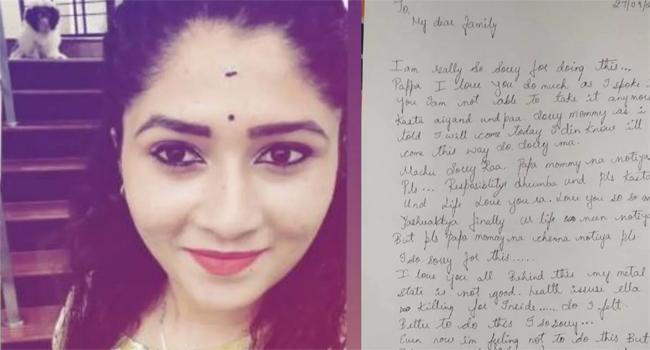 To,
27/09/
My dear family
I am really so sorry for doing this...
Pappa I love you so much as I spoke
You I am not able to take it anymore
Kasta aiyand undpaa. Sorry mommy as i
told I will come today I din know i'll
come this way So sorry ma.
Machu Sorry Raa. Papa mommy na notiya
Pls... Responsiblity dhumba und pls Kasta
Und life Love you ra. Love you so so
finally us life neen notiya
But pls Papa mommy na chenna notiya pls.
I so sorry for this......
I love you all Behind this my metal
State is not good. health issuse ella
Killing for Inside..... So I felt.
Better to do this I so sorry...
Even now im feeling not to do this But